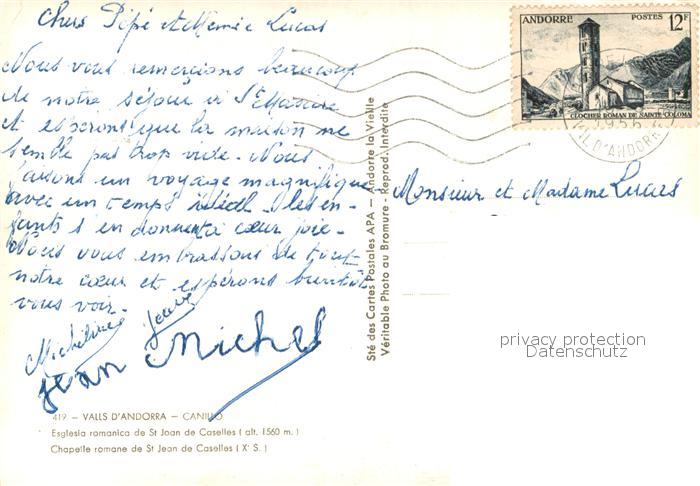 Chers Pépé et Mémée Lucas
Nous vous remercions beaucoup
de notre séjour à St
et espérons que la maison ne
semble pas trop vide. Nous
faisons un voyage magnifique
avec un temps idéal. Les en-
fants s'en donnent à cœur joie.
Nous vous embrassons de tout
notre cœur et espérons bientôt
vous voir.
Micheline
Jean Michel
419 – VALLS D'ANDORRA – CANILLO
Esglesia romanica de St Joan de Caselles ( alt. 1560 m. )
Chapelle romane de St Jean de Caselles ( Xe S. )
Sté des Cartes Postales APA — Andorre la Vieille
Véritable Photo au Bromure - Reprod. Interdite
ANDORRE POSTES 12F
CLOCHER ROMAN DE SAINTE-COLOMA
D'ANDORRE
Monsieur et Madame Lucas
privacy protection
Datenschutz